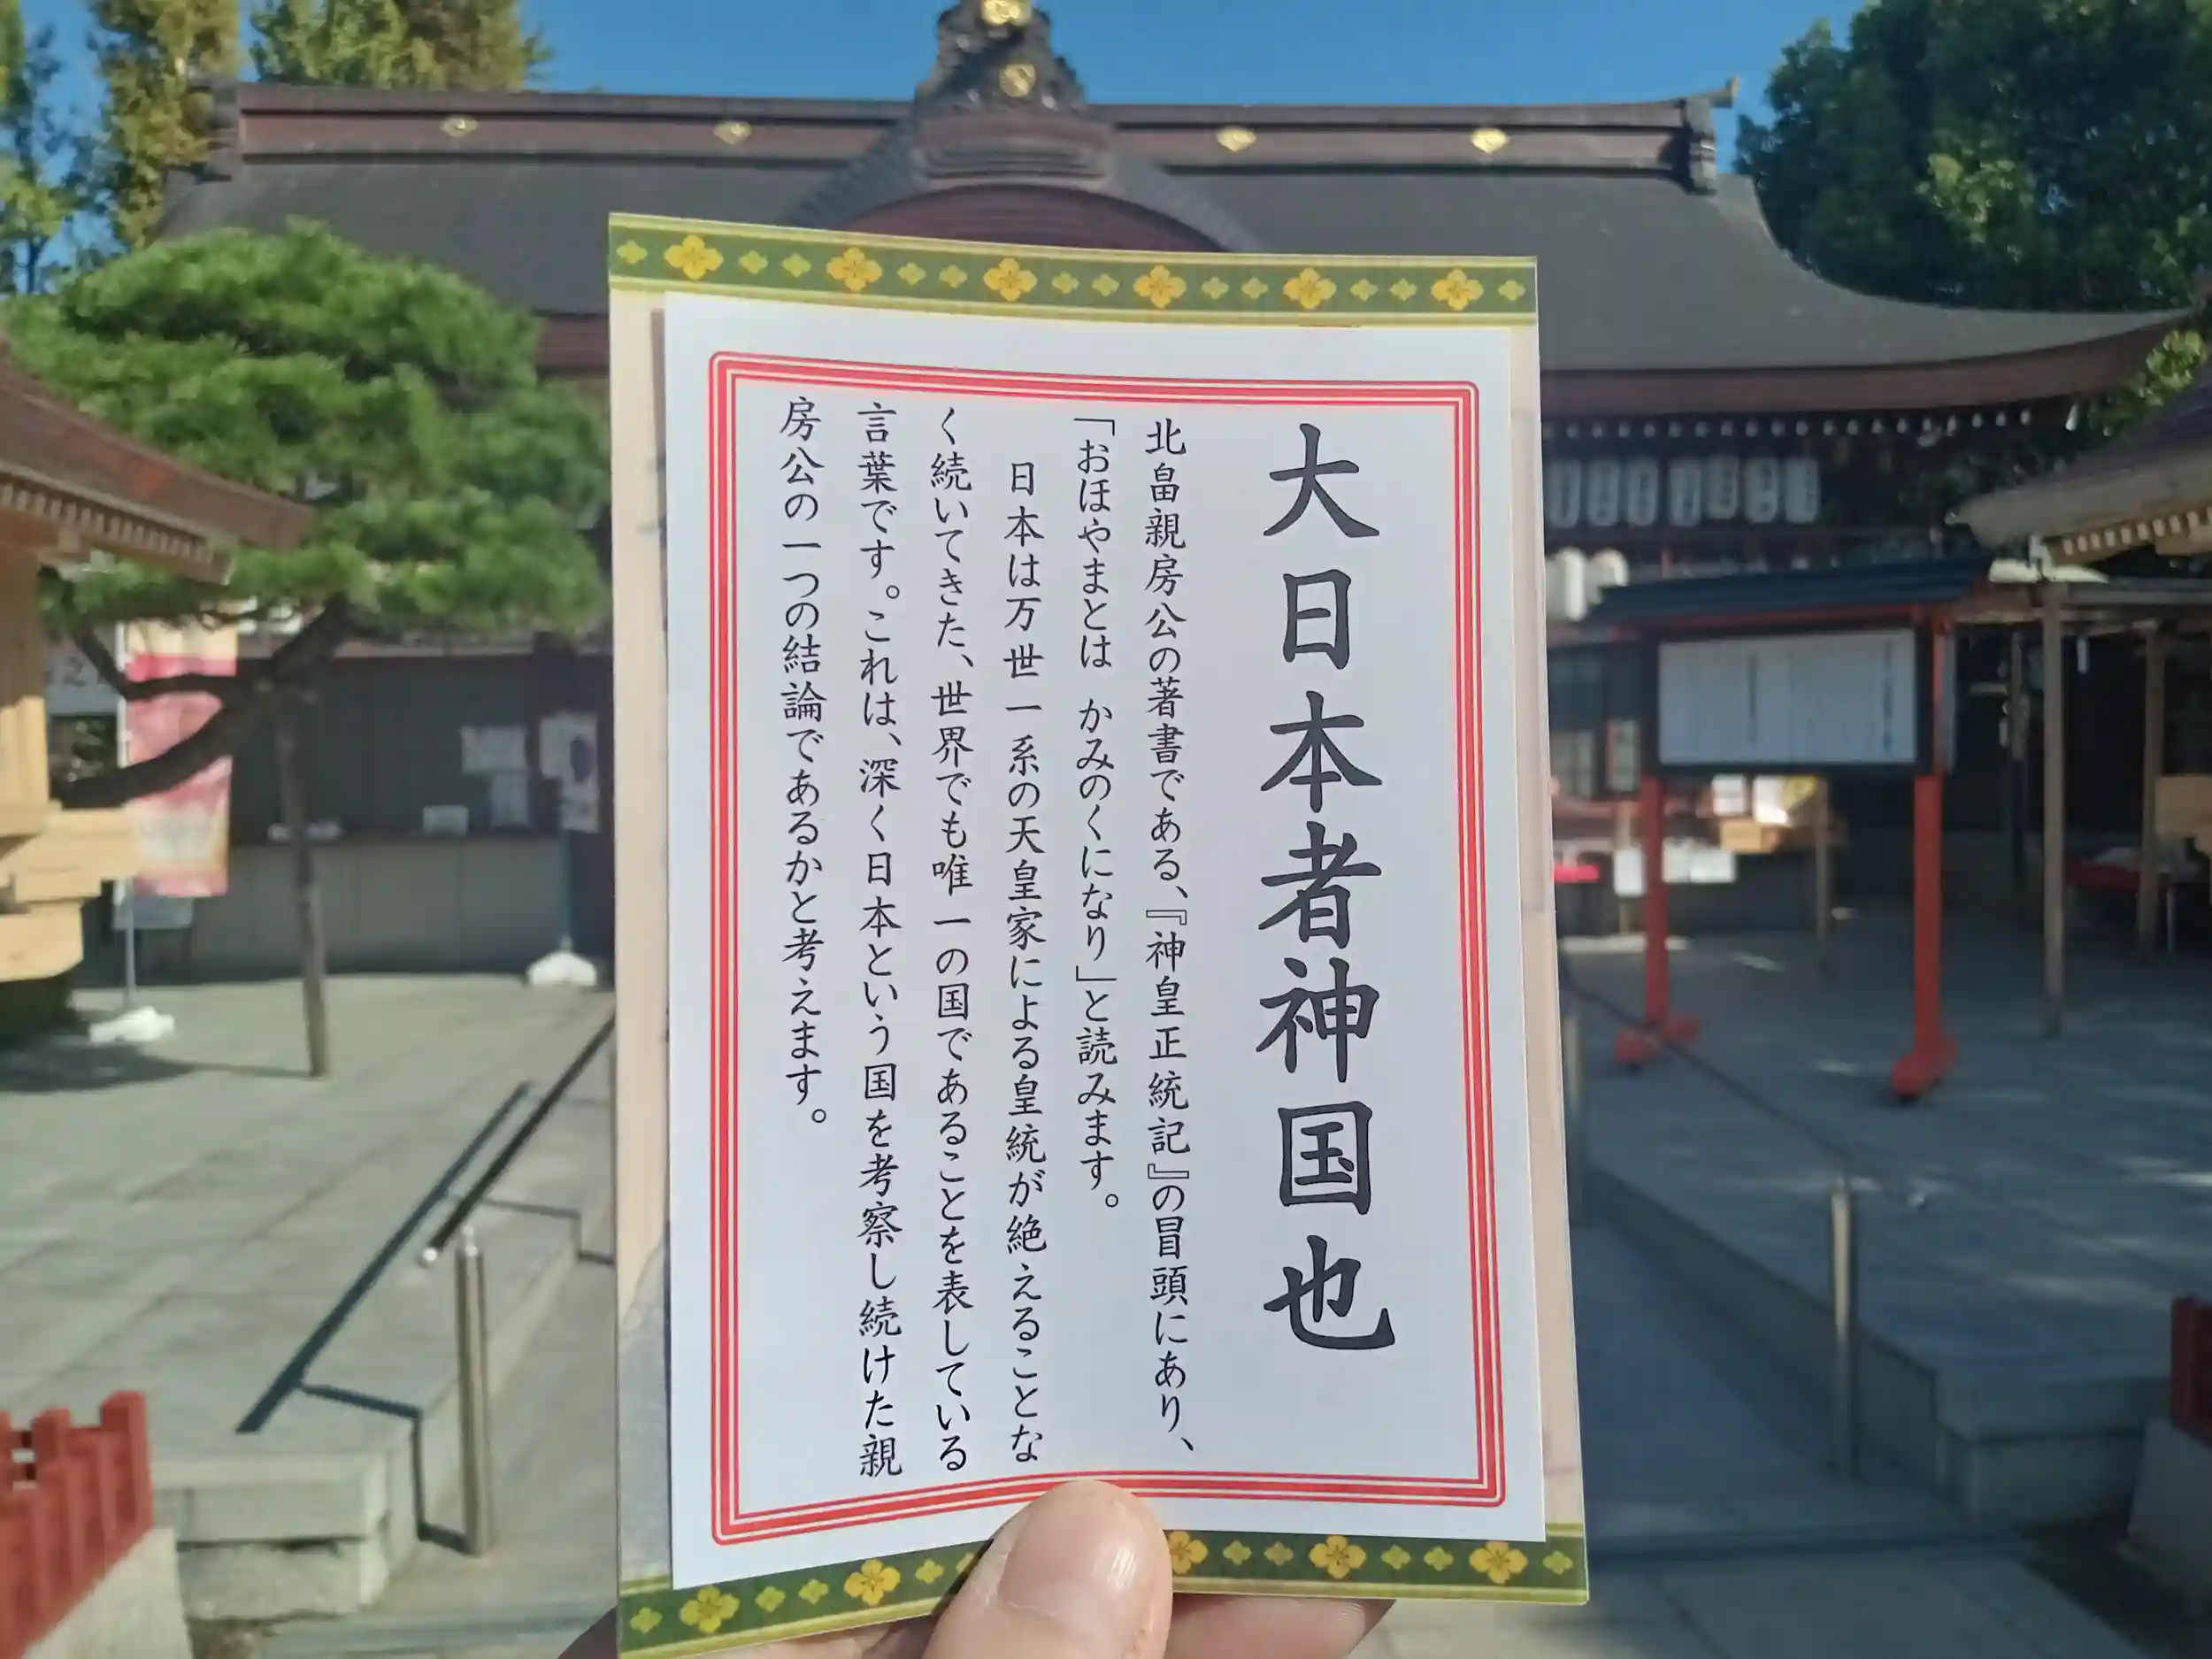 大日本者神国也
北畠親房公の著書である、『神皇正統記』の冒頭にあり、
「おほやまとは かみのくになり」と読みます。
日本は万世一系の天皇家による皇統が絶えることな
く続いてきた、世界でも唯一の国であることを表している
言葉です。これは、深く日本という国を考察し続けた親
房公の一つの結論であるかと考えます。